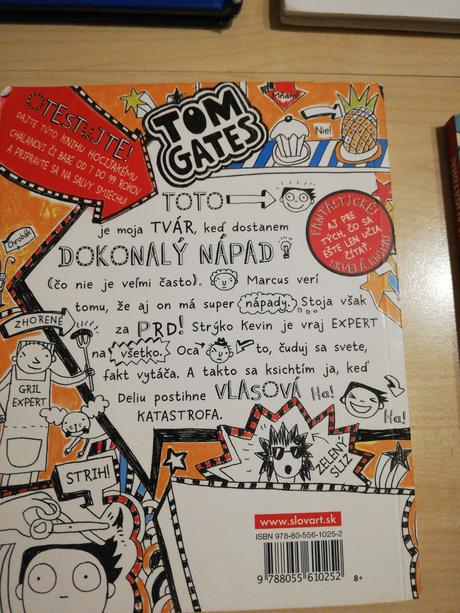 OTESTUJTE!
DAJTE TÚTO KNIHU HOCIJAKÉMU
CHALANOVI ČI BABE OD 7 DO 99 ROKOV
A PRIPRAVTE SA NA SALVY SMIECHU
TOM
GATES
Mňam
Nie!
TOTO
je moja TVÁR, keď dostanem
DOKONALÝ NÁPAD
(čo nie je veľmi často). Marcus verí
tomu, že aj on má super nápady. Stoja však
za PRD! Strýko Kevin je vraj EXPERT
na všetko. Oca to, čuduj sa svete,
fakt vytáča. A takto sa ksichtím ja, keď
Deliu postihne VLASOVÁ
KATASTROFA.
FANTASTICKÉ
AJ PRE
TÝCH, ČO SA
EŠTE LEN UČIA
ČÍTAŤ.
SKVELÁ KNIHA!
Chrobák
ZHORENÉ
GRIL
EXPERT
STRIH!
Ha!
Ha!
ZELENÝ
SLIZ
www.slovart.sk
ISBN 978-80-556-1025-2
9 788055 610252
8+